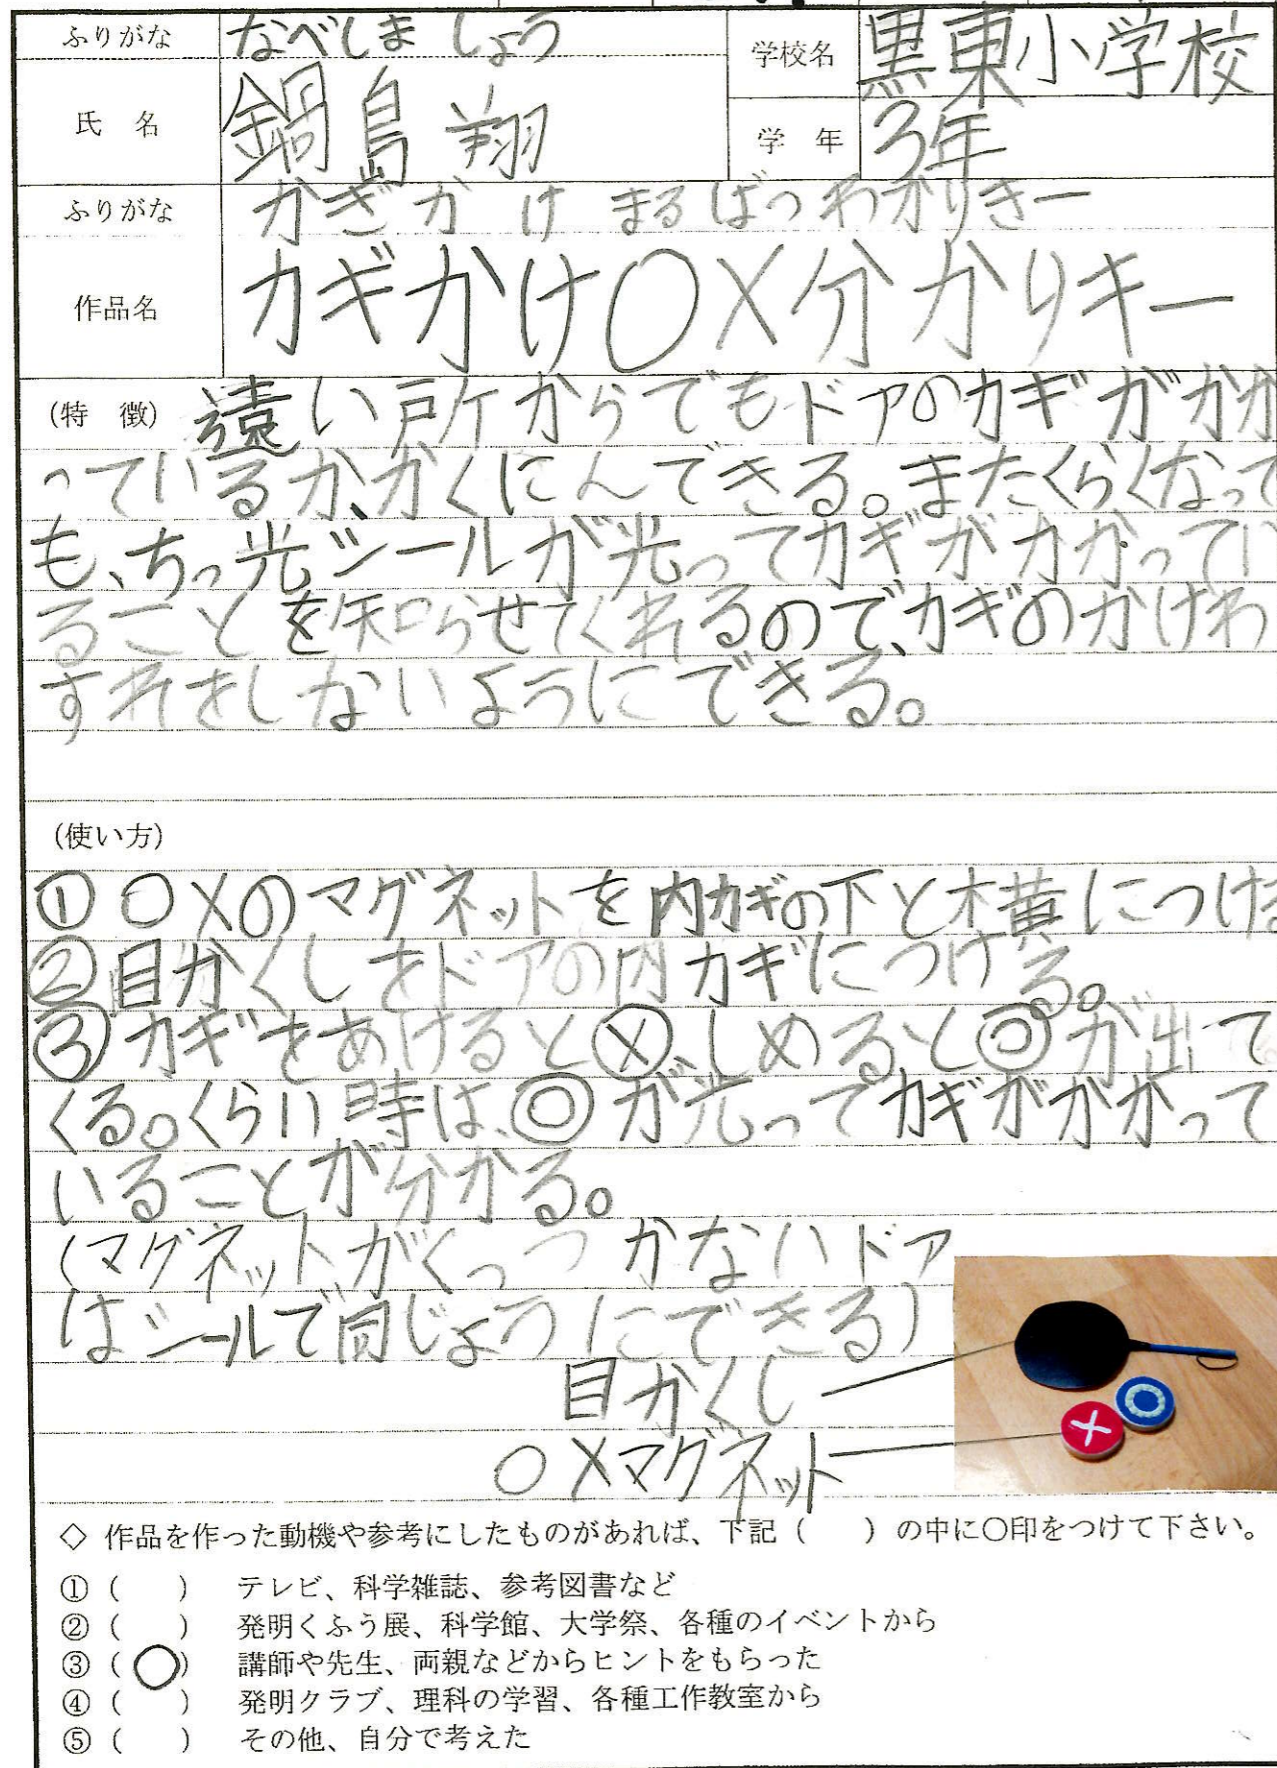 ふりがな なべしま しょう
学校名 黒東小学校
氏 名 鍋島 翔
学 年 3年
ふりがな かぎかけ まるばつわかりきー
作品名 カギかけ○×分かりキー
(特 徴) 遠い所からでもドアのカギがかか
っているか、かくにんできる。またくらくなって
も、ちっ光シールが光ってカギがかかってい
ることを知らせてくれるので、カギのかけわ
すれをしないようにできる。
(使い方)
① ○×のマグネットを内カギの下と横につける
② 目かくしをドアの内カギにつける。
③ カギをあけると⊗、しめると◎が出て
くる。くらい時は、◎が光ってカギがかかって
いることが分かる。
(マグネットがくっつかないドア
はシールで同じようにできる)
目かくし
○×マグネット
◇ 作品を作った動機や参考にしたものがあれば、下記( )の中に○印をつけて下さい。
① ( ) テレビ、科学雑誌、参考図書など
② ( ) 発明くふう展、科学館、大学祭、各種のイベントから
③ (○) 講師や先生、両親などからヒントをもらった
④ ( ) 発明クラブ、理科の学習、各種工作教室から
⑤ ( ) その他、自分で考えた